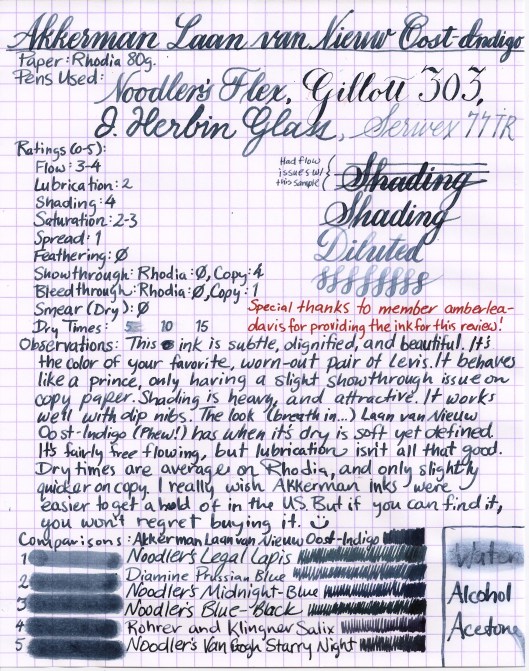 Akkerman Laan van Nieuw Oost-Indigo
Paper: Rhodia 80g.
Pens Used:
Noodler's Flex, Gillott 303,
J. Herbin Glass, Serwex 77TR
Ratings (0-5):
Flow: 3-4
Lubrication: 2
Shading: 4
Saturation: 2-3
Spread: 1
Feathering: Ø
Showthrough: Rhodia: Ø, Copy: 4
Bleedthrough: Rhodia: Ø, Copy: 1
Smear (Dry): Ø
Dry Times: 5 10 15
Had flow
issues w/
this sample
Shading
Shading
Diluted
Special thanks to member amberlea-
davis for providing the ink for this review!
Observations: This ink is subtle, dignified, and beautiful. It's
the color of your favorite, worn-out pair of Levis. It behaves
like a prince, only having a slight showthrough issue on
copy paper. Shading is heavy, and attractive. It works
well with dip nibs. The look (breath in...) Laan van Nieuw
Oost-Indigo (Phew!) has when it's dry is soft yet defined.
It's fairly free flowing, but lubrication isn't all that good.
Dry times are average on Rhodia, and only slightly
quicker on copy. I really wish Akkerman inks were
easier to get a hold of in the US. But if you can find it,
you won't regret buying it.
Comparisons: Akkerman Laan van Nieuw Oost-Indigo
1 Noodler's Legal Lapis
2 Diamine Prussian Blue
3 Noodler's Midnight-Blue
Noodler's Blue-Black
4 Rohrer and Klingner Salix
5 Noodler's Van Gogh Starry Night
Water
Alcohol
Acetone